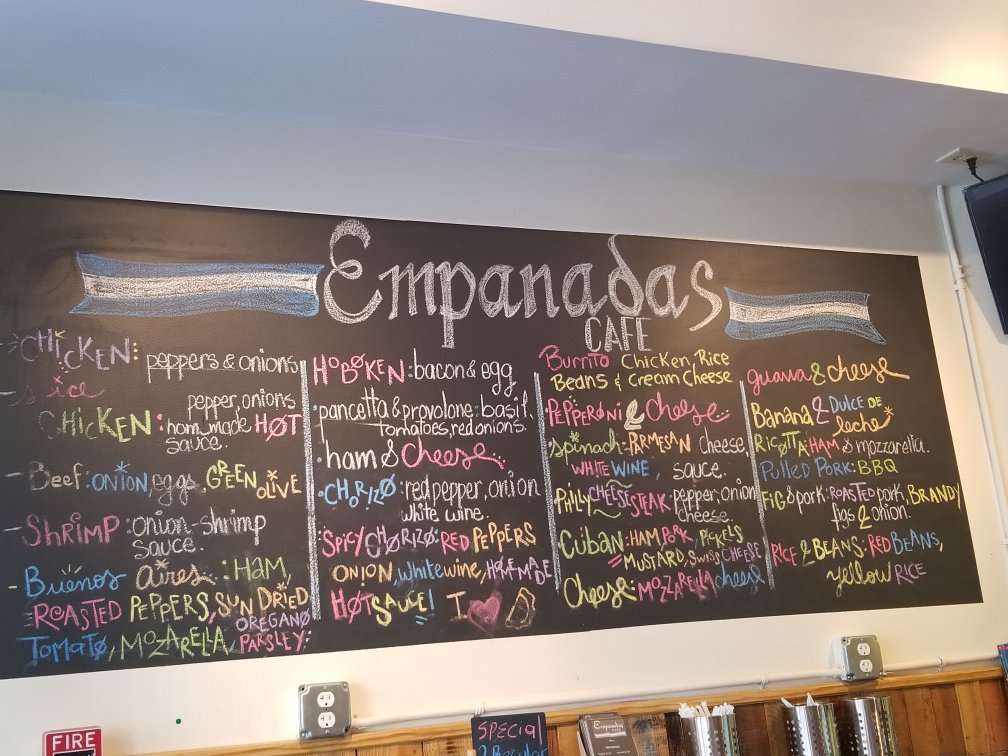 Empanadas
CAFE
CHICKEN: peppers & onions
spice
CHICKEN: pepper, onions
hom made HOT
sauce.
Beef: ONION, eggs, GREEN
OLIVE
SHRIMP: onion-shrimp
sauce.
Buenos aires: HAM,
ROASTED PEPPERS, SUN DRIED
OREGANO
TOMATO, MOZARELLA, PARSLEY:
HOBOKEN: bacon & egg
pancetta & provolone: basil,
tomatoes, red onions.
ham & cheese
CHORIZO: red pepper, onion
white wine.
SPICY CHORIZO: RED PEPPERS
ONION, white wine, HOMEMADE
HOT SAUCE! I
Burrito Chicken, Rice
Beans & Cream Cheese
PEPPERONI & Cheese
spinach: PARMESAN cheese,
WHITE WINE, sauce.
PHILLY CHEESESTEAK: pepper, onion
cheese.
CUBAN: HAM, PORK, PICKELS
MUSTARD, SWISS CHEESE
Cheese: MOZZARELLA cheese
guava & cheese
BANANA & DULCE DE
leche
RICOTTA: HAM & mozzarella.
Pulled PORK: BBQ
FIG & pork: ROASTED pork, BRANDY
figs & onion.
RICE & BEANS: RED BEANS,
yellow RICE
FIRE
SPECIAL
2 Regular
Empanadas